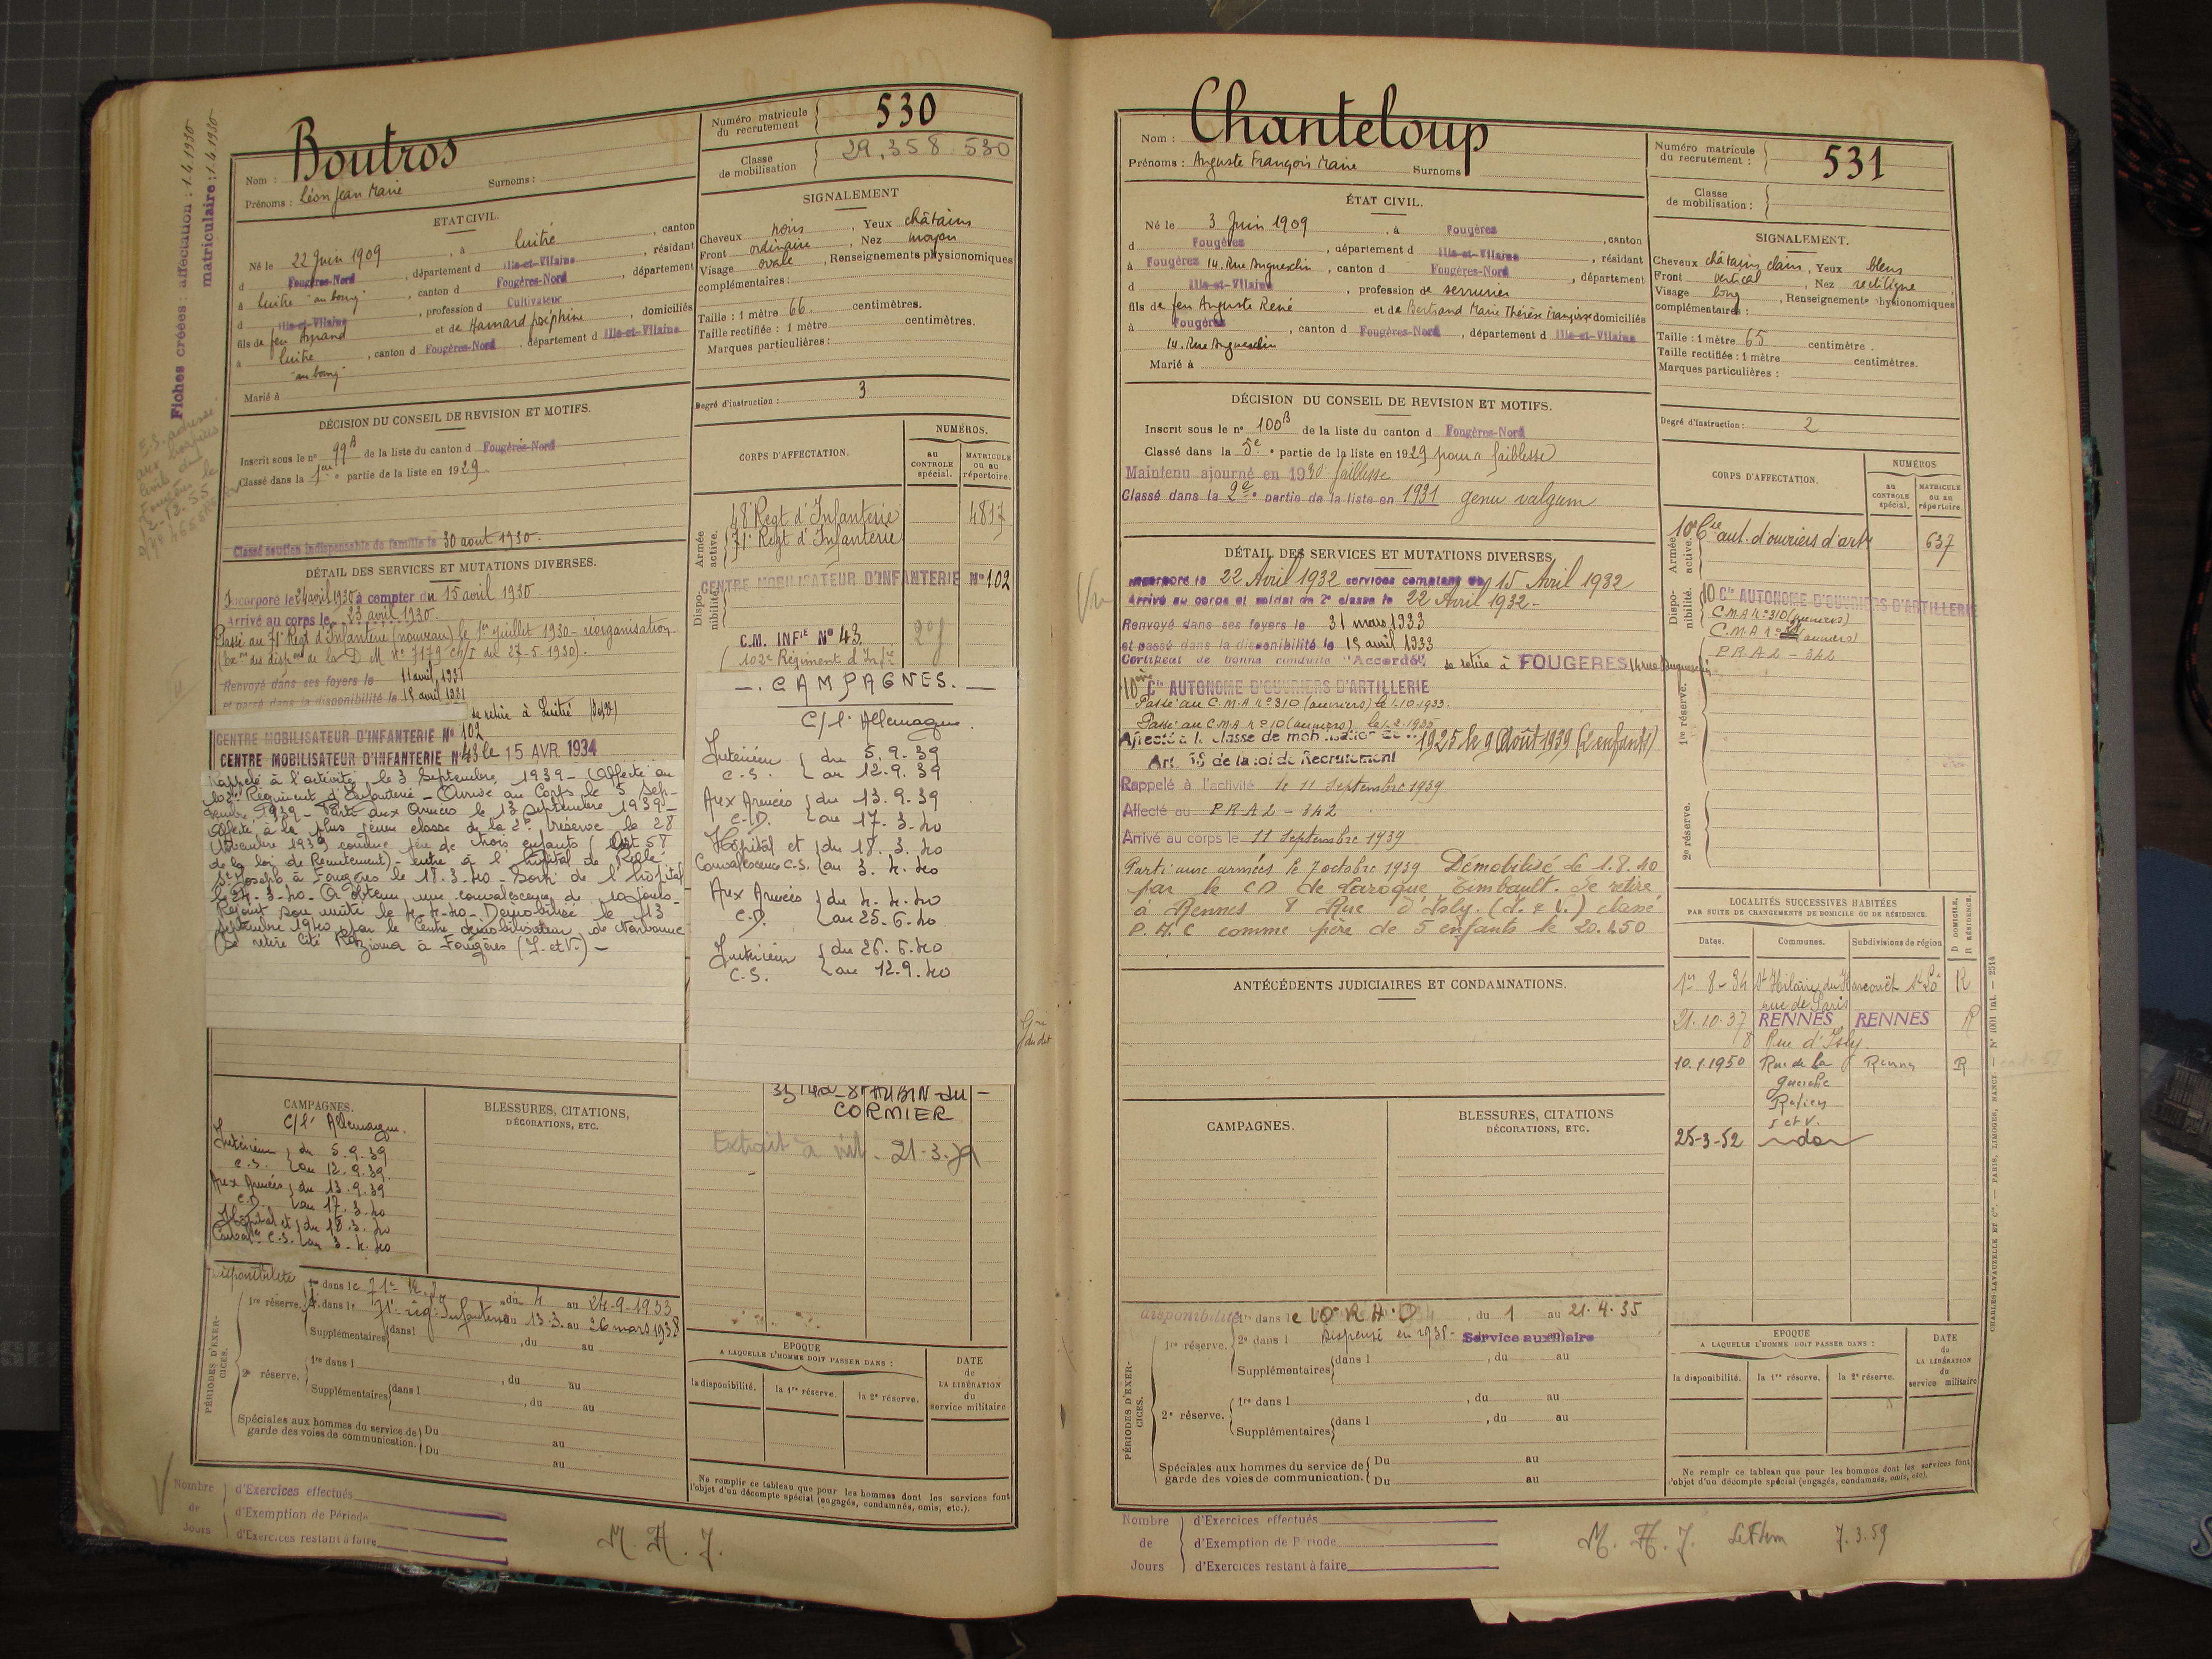 Fiches créées : affectation : 1.4.1930
matriculaire : 1.4.1930
Nom : Boutros
Prénoms : Léon Jean Marie Surnoms :
Numéro matricule du recrutement 530
Classe de mobilisation 29.358.530
ETAT CIVIL.
Né le 22 Juin 1909, à Luitré, canton
d Fougères-Nord, département d Ille-et-Vilaine, résidant
à Luitré "au bourg", canton d Fougères-Nord, département
d Ille-et-Vilaine, profession d Cultivateur
fils de feu et de Hamard Joséphine domiciliés
à Luitré, canton d Fougères-Nord, département d Ille-et-Vilaine
"au bourg"
Marié à
SIGNALEMENT
Cheveux noirs, Yeux châtains
Front ordinaire, Nez moyen
Visage ovale, Renseignements physionomiques
complémentaires :
Taille : 1 mètre 66 centimètres.
Taille rectifiée : 1 mètre centimètres.
Marques particulières :
Degré d'instruction : 3
DÉCISION DU CONSEIL DE REVISION ET MOTIFS.
Inscrit sous le n° 99B de la liste du canton d Fougères-Nord
Classé dans la 1ère partie de la liste en 1929
Classé soutien indispensable de famille le 30 aout 1930.
DÉTAIL DES SERVICES ET MUTATIONS DIVERSES.
Incorporé le 24 avril 1930 à compter du 15 avril 1930.
Arrivé au corps le 23 avril 1930.
Passé au 71e Regt d'Infanterie (nouveau) le 1er Juillet 1930 - réorganisation
de la D M n° 7179 du 27-5-1930).
Renvoyé dans ses foyers le 11 avril 1931
et passé dans la disponibilité le 15 avril 1931
se retire à Luitré
CENTRE MOBILISATEUR D'INFANTERIE N° 102
CENTRE MOBILISATEUR D'INFANTERIE N° 43 le 15 AVR. 1934
Rappelé à l'activité, le 3 Septembre 1939 - Affecté au
102e Régiment d'Infanterie - Arrivé au Corps le 5 Sep-
tembre 1939 - Parti aux Armées le 13 Septembre 1939 -
Affecté à la plus jeune classe de la 2e réserve le 28
Novembre 1939 comme père de trois enfants (Art 58
de la loi de Recrutement) - entré à l'hôpital de Rillé
St Joseph à Fougères le 18.3.40 - Sorti de l'hôpital
le 24.3.40 - A obtenu une convalescence de 10 jours -
Rejoint son unité le 4.4.40 - Démobilisé le 13
Septembre 1940 par le Centre démobilisateur de Narbonne
Se retire Cité à Fougères (I. et V.) -
CORPS D'AFFECTATION.
NUMÉROS.
au CONTROLE spécial.
MATRICULE ou au répertoire.
Armée active.
48e Regt d'Infanterie 4817
71e Regt d'Infanterie
Disponibilité.
CENTRE MOBILISATEUR D'INFANTERIE N° 102
C.M. INFie N° 43
102e Régiment d'Infie
- . CAMPAGNES. -
C/l'Allemagne.
Intérieur du 5.9.39
C.S. au 12.9.39
Aux Armées du 13.9.39
C.D. au 17.3.40
Hôpital et du 18.3.40
Convalescence C.S. au 3.4.40
Aux Armées du 4.4.40
C.D. au 25.6.40
Intérieur du 26.6.40
C.S. au 12.9.40
St AUBIN-du-
CORMIER
Extrait à 21.3.
CAMPAGNES.
C/l'Allemagne.
Intérieur du 5.9.39
C.S. au 12.9.39
Aux Armées du 13.9.39
C.D. au 17.3.40
Hôpital et du 18.3.40
C.S. au 3.4.40
BLESSURES, CITATIONS, DÉCORATIONS, ETC.
PÉRIODES D'EXERCICES.
Disponibilité
1re réserve. 1re dans le 71e R.I. du 4 au 24-9-1933
2e dans le 71e régt Infanterie du 13.3. au 26 mars 1938
Supplémentaires dans l , du au
2e réserve. 1re dans l , du au
Supplémentaires dans l , du au
Spéciales aux hommes du service de garde des voies de communication. Du au
Du au
EPOQUE
A LAQUELLE L'HOMME DOIT PASSER DANS :
la disponibilité. la 1re réserve. la 2e réserve.
DATE de LA LIBÉRATION du service militaire
Ne remplir ce tableau que pour les hommes dont les services font
l'objet d'un décompte spécial (engagés, condamnés, omis, etc.).
Nombre de Jours
d'Exercices effectués
d'Exemption de Période
d'Exercices restant à faire
M. H. J.
Nom : Chanteloup
Prénoms : Auguste François Marie Surnoms
Numéro matricule du recrutement : 531
Classe de mobilisation :
ÉTAT CIVIL.
Né le 3 Juin 1909, à Fougères, canton
d Fougères, département d Ille-et-Vilaine, résidant
à Fougères 14. Rue Duguesclin, canton d Fougères-Nord, département
d Ille-et-Vilaine, profession de serrurier
fils de feu Auguste René et de Bertrand Marie Thérèse Françoise domiciliés
à Fougères, canton d Fougères-Nord, département d Ille-et-Vilaine
14. Rue Duguesclin
Marié à
SIGNALEMENT.
Cheveux châtains clairs, Yeux bleus
Front vertical, Nez rectiligne
Visage long, Renseignements physionomiques
complémentaires :
Taille : 1 mètre 65 centimètre.
Taille rectifiée : 1 mètre centimètres.
Marques particulières :
Degré d'instruction : 2
DÉCISION DU CONSEIL DE REVISION ET MOTIFS.
Inscrit sous le n° 100B de la liste du canton d Fougères-Nord
Classé dans la 5e partie de la liste en 1929 pour faiblesse
Maintenu ajourné en 1930 faiblesse
Classé dans la 2e partie de la liste en 1931 genu valgum
DÉTAIL DES SERVICES ET MUTATIONS DIVERSES.
Incorporé le 22 Avril 1932 services comptant du 15 Avril 1932
Arrivé au corps et soldat de 2e classe le 22 Avril 1932 -
Renvoyé dans ses foyers le 31 mars 1933
et passé dans la disponibilité le 15 avril 1933
Certificat de bonne conduite "Accordé" se retire à FOUGERES 14 rue Duguesclin
10ème Cie AUTONOME D'OUVRIERS D'ARTILLERIE
Passé au C.M.A. n° 310 (ouvriers) le 1.10.1933.
Passé au C.M.A n° 10 (ouvriers) le 1.2.1935
Affecté à la classe de mobilisation de 1925 le 9 Août 1939 (2 enfants)
Art. 58 de la loi de Recrutement
Rappelé à l'activité le 11 Septembre 1939
Affecté au P R A L - 342
Arrivé au corps le 11 Septembre 1939
Parti aux armées le 7 octobre 1939 Démobilisé le 1.8.40
par le CD de Laroque Timbault. Se retire
à Rennes 8 Rue d'Isly. (I. & V.) classé
P. H. C comme père de 5 enfants le 20.1.50
CORPS D'AFFECTATION.
NUMÉROS
au CONTROLE spécial.
MATRICULE ou au répertoire.
Armée active.
10e Cie aut. d'ouvriers d'art 637
Disponibilité.
10 Cie AUTONOME D'OUVRIERS D'ARTILLERIE
C.M.A n° 310 (ouvriers)
C.M.A n° (ouvriers)
P R A L - 342
1re réserve.
2e réserve.
ANTÉCÉDENTS JUDICIAIRES ET CONDAMNATIONS.
LOCALITÉS SUCCESSIVES HABITÉES
PAR SUITE DE CHANGEMENTS DE DOMICILE OU DE RÉSIDENCE.
D DOMICILE, R RÉSIDENCE.
Dates. Communes. Subdivisions de région
1er 8-34 St Hilaire du Harcouët St Lô R
rue de Paris
21.10.37 RENNES RENNES R
8 Rue d'Isly.
10.1.1950 Rue de la Rennes R
Guerche
Retiers
I et V.
25-3-52 do
CAMPAGNES.
BLESSURES, CITATIONS DÉCORATIONS, ETC.
PÉRIODES D'EXERCICES.
disponibilité
1re réserve. 1re dans le 10e R A D, du 1 au 21.4.35
2e dans l Dispensé en 1938 - Service auxiliaire
Supplémentaires dans l , du au
2e réserve. 1re dans l , du au
Supplémentaires dans l , du au
Spéciales aux hommes du service de garde des voies de communication. Du au
Du au
EPOQUE
A LAQUELLE L'HOMME DOIT PASSER DANS :
la disponibilité. la 1re réserve. la 2e réserve.
DATE de LA LIBÉRATION du service militaire
Ne remplir ce tableau que pour les hommes dont les services font
l'objet d'un décompte spécial (engagés, condamnés, omis, etc).
CHARLES-LAVAUZELLE ET Cie. — PARIS, LIMOGES, NANCY. — N° 1001 int. — 2514
Nombre de Jours
d'Exercices effectués
d'Exemption de Période
d'Exercices restant à faire
M. H. J. 7.3.59